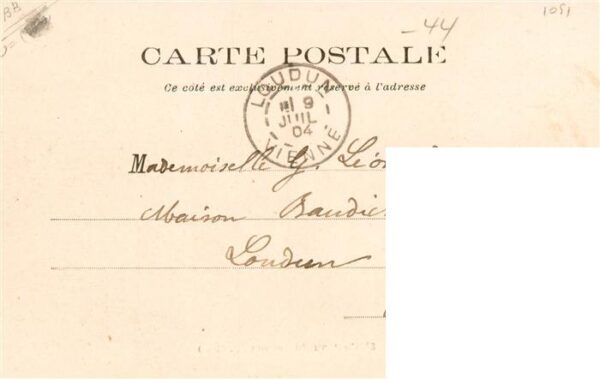 BH
-44
1091
CARTE POSTALE
Ce côté est exclusivement réservé à l'adresse
LOUDUN
9
JUIL
04
VIENNE
Mademoiselle G.
Maison
Loudun